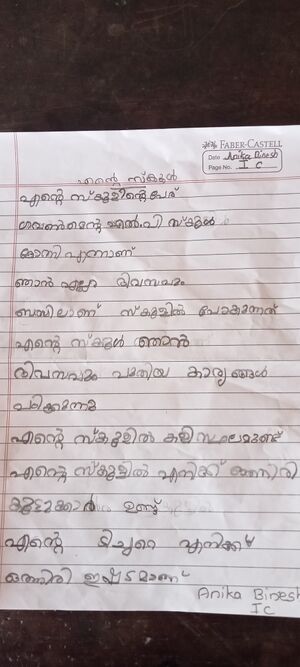 FABER-CASTELL
Date Anika Binesh
Page No. I C
എന്റെ സ്കൂൾ
എന്റെ സ്കൂളിന്റെ പേര്
ഗവൺമെന്റ് എൽ.പി സ്കൂൾ
കോന്നി എന്നാണ്
ഞാൻ എല്ലാ ദിവസവും
ബസിലാണ് സ്കൂളിൽ പോകുന്നത്
എന്റെ സ്കൂൾ ഞാൻ
ദിവസവും പുതിയ കാര്യങ്ങൾ
പഠിക്കുന്നു
എന്റെ സ്കൂളിൽ കളിസ്ഥലമുണ്ട്
എന്റെ സ്കൂളിൽ എനിക്ക് ഒത്തിരി
കൂട്ടുക്കാർ ഉണ്ട്
എന്റെ ടിച്ചറെ എനിക്ക്
ഒത്തിരി ഇഷ്ടമാണ്
Anika Binesh
I C